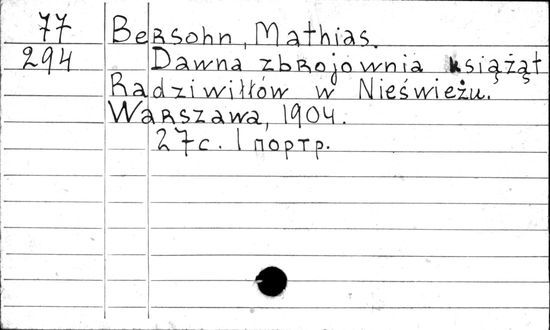 77 Bersohn, Mathias.
294 Dawna zbrojownia książąt
Radziwiłłów w Nieświeżu.
Warszawa, 1904.
27с. 1 портр.